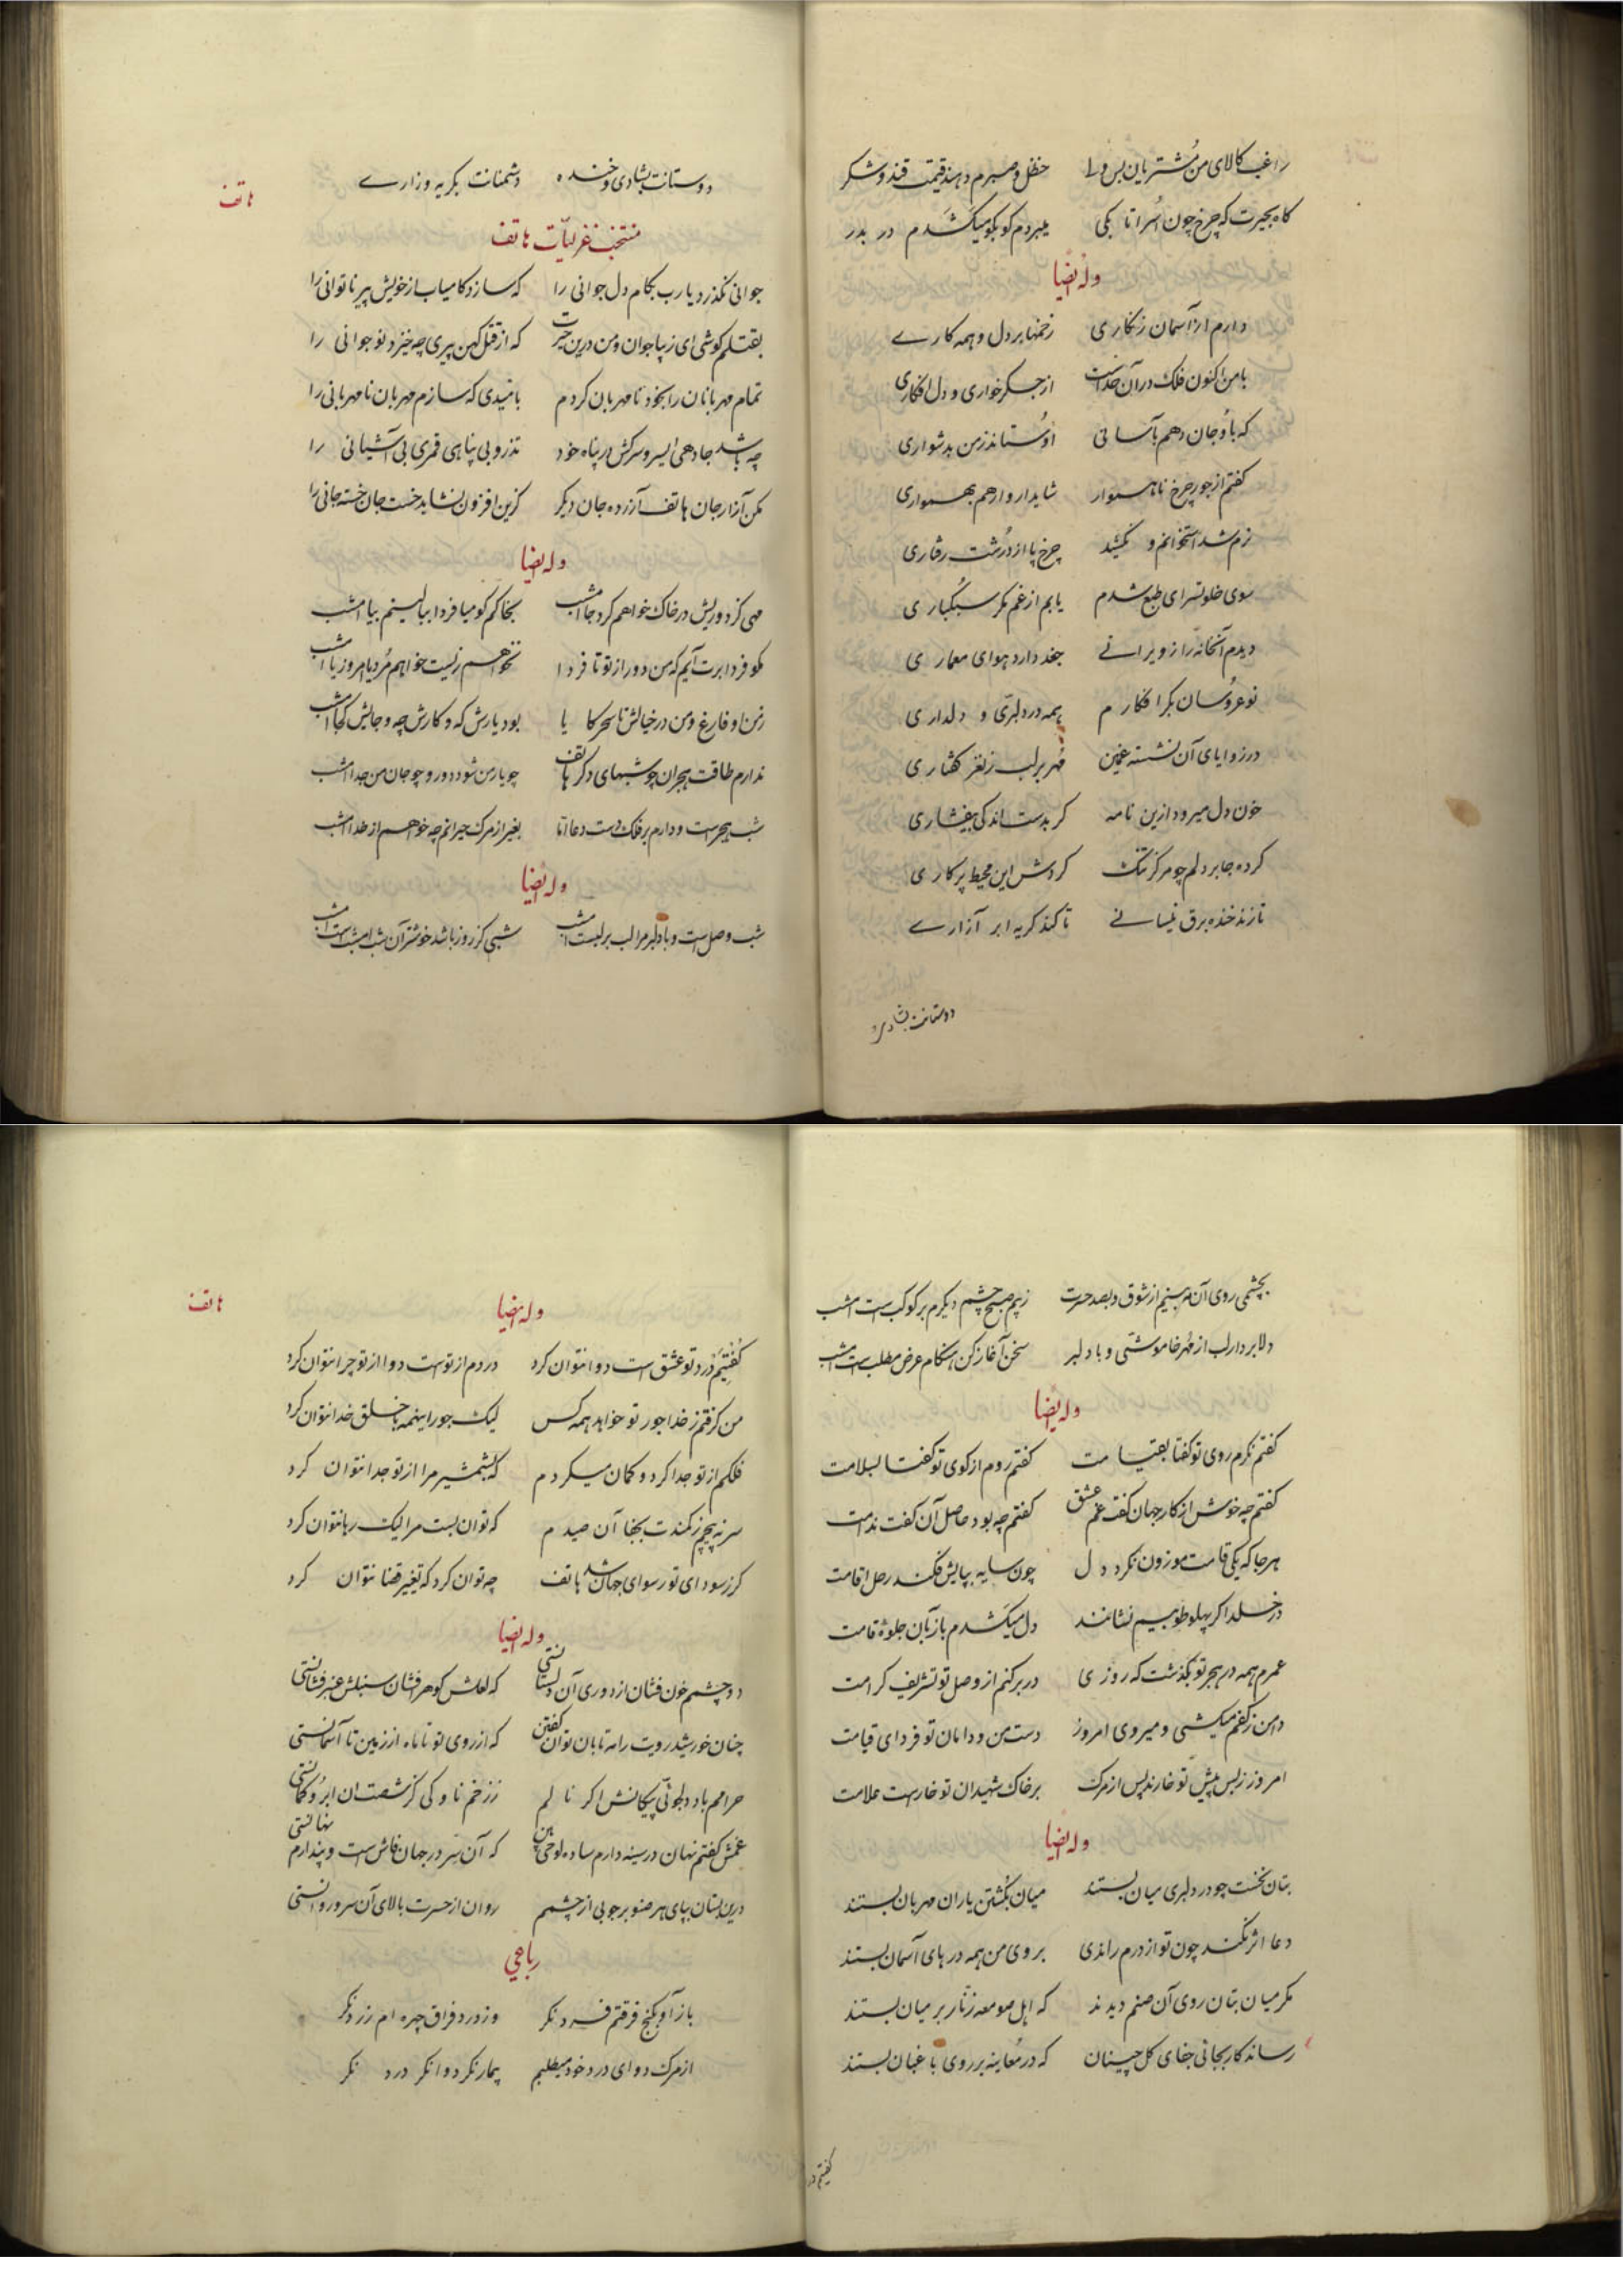 راغب کالای من مشتریان بس ولی حنظل و صبرم دهند قیمت قند و شکر
کاه بحیرت که چرخ چون اسرا تا بکی میبردم کو بکو میکشدم در بدر
وله ایضا
دارم از آسمان زنکاری زخمها بر دل و همه کارے
با من اکنون فلک در آن حد است از جکر خواری و دل افکاری
که باو جان دهم بآسانی او ستاند ز من بدشواری
کفتم از جور چرخ ناهموار شاید ار وارهم بهمواری
نرم شد استخوانم و نکشید چرخ پا از درشت رفتاری
سوی خلوتسرای طبع شدم یابم از غم مکر سبکباری
دیدم آنخانه را ز ویرانے جغد دارد هوای معماری
نوعروسان بکر افکارم همه در دلبری و دلداری
در زوایای آن نشسته غمین مهر بر لب ز نغز کفتاری
خون دل میرود ازین نامه کر بدست اندکی بیفشاری
کرده جا بر دلم چو مرکز تنک کردش این محیط پرکاری
تا زند خنده برق نیسانے تا کند کریه ابر آزارے
دوستانت بشادی و
هاتف
دوستانت بشادی و خنده دشمنانت بکریه وزارے
منتخب غزلیّات هاتف
جوانی بکذرد یارب بکام دل جوانی را که سازد کامیاب از خویش پیر ناتوانی را
بقتلم کوشی ای زیبا جوان و من درین حیرت که از قتل کهن پیری چه خیزد نوجوانی را
تمام مهربانان را بخود نامهربان کردم بامیدی که سازم مهربان نامهربانی را
چه باشد جا دهی ای سرو سرکش در پناه خود تذرو بی پناهی قمری بی آشیانی را
مکن آزار جان هاتف آزرده جان دیکر کزین افزون نشاید خست جان خسته جانی را
وله ایضا
مهی کز دوریش در خاک خواهم کرد جا امشب بخاکم کو میا فردا ببالینم بیا امشب
مکو فردا برت آیم که من دور از تو تا فردا نخواهم زیست خواهم مرد یا امروز یا امشب
ز من او فارغ و من در خیالش تا سحر کایا بود یارش که و کارش چه و جایش کجا امشب
ندارم طاقت هجران چو شبهای دکر هاتف چو یار من شود دور و چو جان من جدا امشب
شب هجرست و دارم بر فلک دست دعا اما بغیر از مرک حیرانم چه خواهم از خدا امشب
وله ایضا
شب وصل است و با دلبر مرا لب بر لبست امشب شبی کز روز باشد خوشتر آن شب امشبست امشب
بچشمی روی آن مه بینم از شوق و بصد حسرت ز بیم صبح چشم دیکرم بر کوکبست امشب
دلا بردار لب از مهر خاموشی و با دلبر سخن آغاز کن هنکام عرض مطلبست امشب
وله ایضا
کفتم نکرم روی تو کفتا بقیامت کفتم روم از کوی تو کفتا بسلامت
کفتم چه خوش از کار جهان کفت غم عشق کفتم چه بود حاصل آن کفت ندامت
هر جا که یکی قامت موزون نکرد دل چون سایه بپایش فکند رحل اقامت
در خلد اکر پهلو طوبیم نشانند دل میکشدم باز بآن جلوهٔ قامت
عمرم همه در هجر تو بکذشت که روزی در بر کنم از وصل تو تشریف کرامت
دامن ز کفم میکشی و میروی امروز دست من و دامان تو فردای قیامت
امروز ز بس پیش تو خارند پس از مرک بر خاک شهیدان تو خارست علامت
وله ایضا
بتان نخست چو در دلبری میان بستند میان بکشتن یاران مهربان بستند
دعا اثر نکند چون تو از درم راندی بروی من همه درهای آسمان بستند
مکر میان بتان روی آن صنم دیدند که اهل صومعه زنّار بر میان بستند
رساند کار بجائی جفای کل چینان که در معاینه بر روی باغبان بستند
کفتیم در
هاتف
وله ایضا
کفتیم درد تو عشق است دوا نتوان کرد دردم از توست دوا از تو چرا نتوان کرد
من کرفتم ز خدا جور تو خواهد همه کس لیک جور اینهمه با خلق خدا نتوان کرد
فلکم از تو جدا کرد و کمان میکردم که بشمشیر مرا از تو جدا نتوان کرد
سر نپیچم ز کمندت بجفا آن صیدم که توان بست مرا لیک رها نتوان کرد
کر ز سودای تو رسوای جهان شد هاتف چه توان کرد که تغییر قضا نتوان کرد
وله ایضا
دو چشمم خون فشان از دوری آن دلستانستی که لعلش کوهر افشان سنبلش عنبر فشانستی
چنان خورشید رویت را مه تابان توان کفتن که از روی تو تا ماه از زمین تا آسمانستی
حرامم باد دلجوئی پیکانش اکر نالم ز زخم ناوکی کز شصت آن ابرو کمانستی
غمش کفتم نهان در سینه دارم ساده لوحی بین که آن سرّ در جهان فاش است و پندارم نهانستی
درین بستان بپای هر صنوبر جوئی از چشمم روان از حسرت بالای آن سرو روانستی
رباعی
باز آو بکنج فرقتم فرد نکر وز درد فراق چهره ام زرد نکر
از مرک دوای درد خود میطلبم بیمار نکر دوا نکر درد نکر